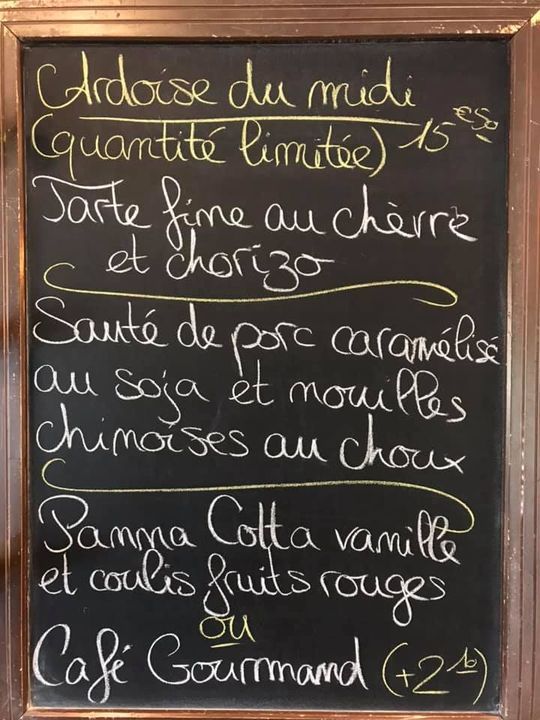 Ardoise du midi
(quantité limitée) 15 €50
Tarte fine au chèvre
et chorizo
Sauté de porc caramélisé
au soja et nouilles
chinoises au choux
Panna Cotta vanille
et coulis fruits rouges
ou
Café Gourmand (+2 10)